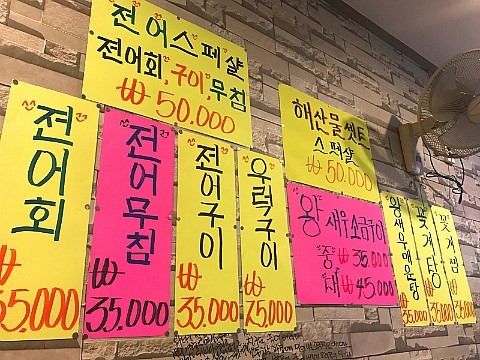 전어스페샬
전어회, 구이, 무침
₩50.000
해산물셋트
스페샬
₩50.000
전어회
₩
35.000
전어무침
₩
35.000
전어구이
₩
35.000
우럭구이
₩
"왕"새우소금구이
"중" ₩35.000
"대" ₩45.000
왕새우매운탕
₩
35.000
꽃게탕
₩
꽃게찜
₩